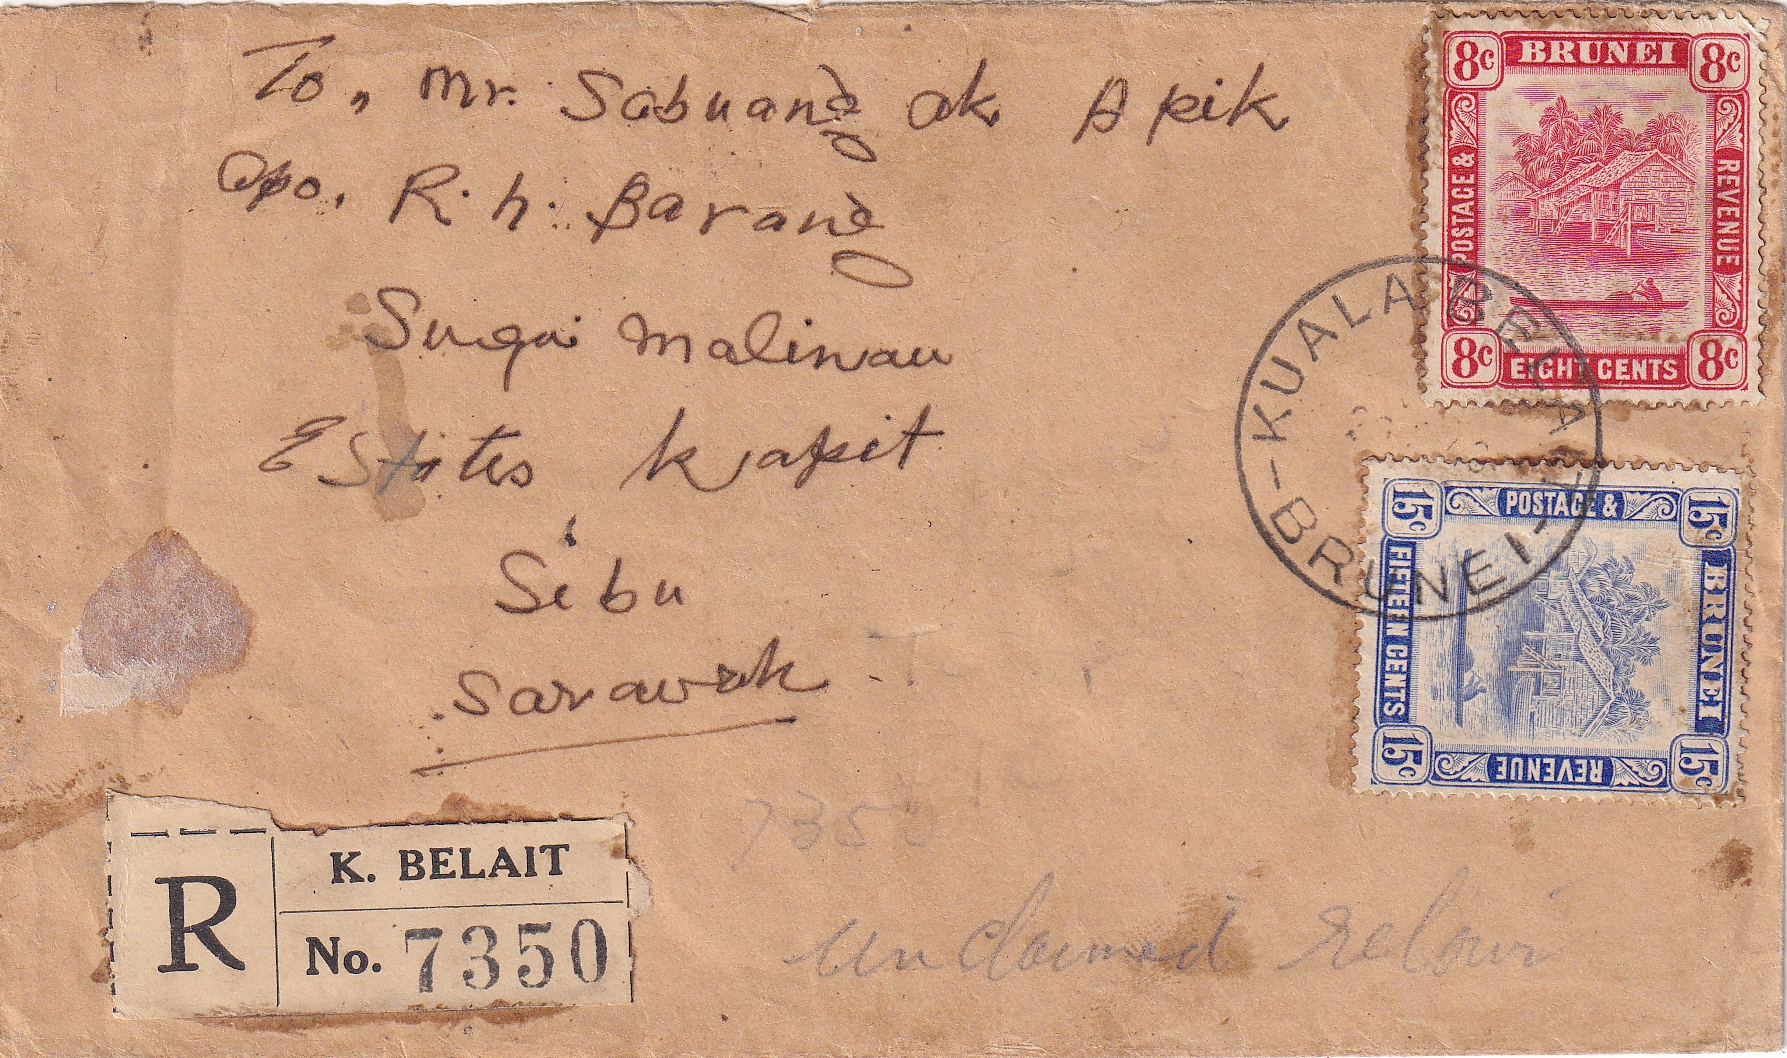 To, Mr. Sabuang ak Apik
c/o. R.h. Barang
Sugai Malinau
Estates Kapit
Sibu
Sarawak
8c BRUNEI 8c
POSTAGE &
REVENUE
8c EIGHT CENTS 8c
KUALA BELAIT
-BRUNEI-
15c POSTAGE & 15c
FIFTEEN CENTS
BRUNEI
15c REVENUE 15c
R
K. BELAIT
No. 7350
7350
Unclaimed